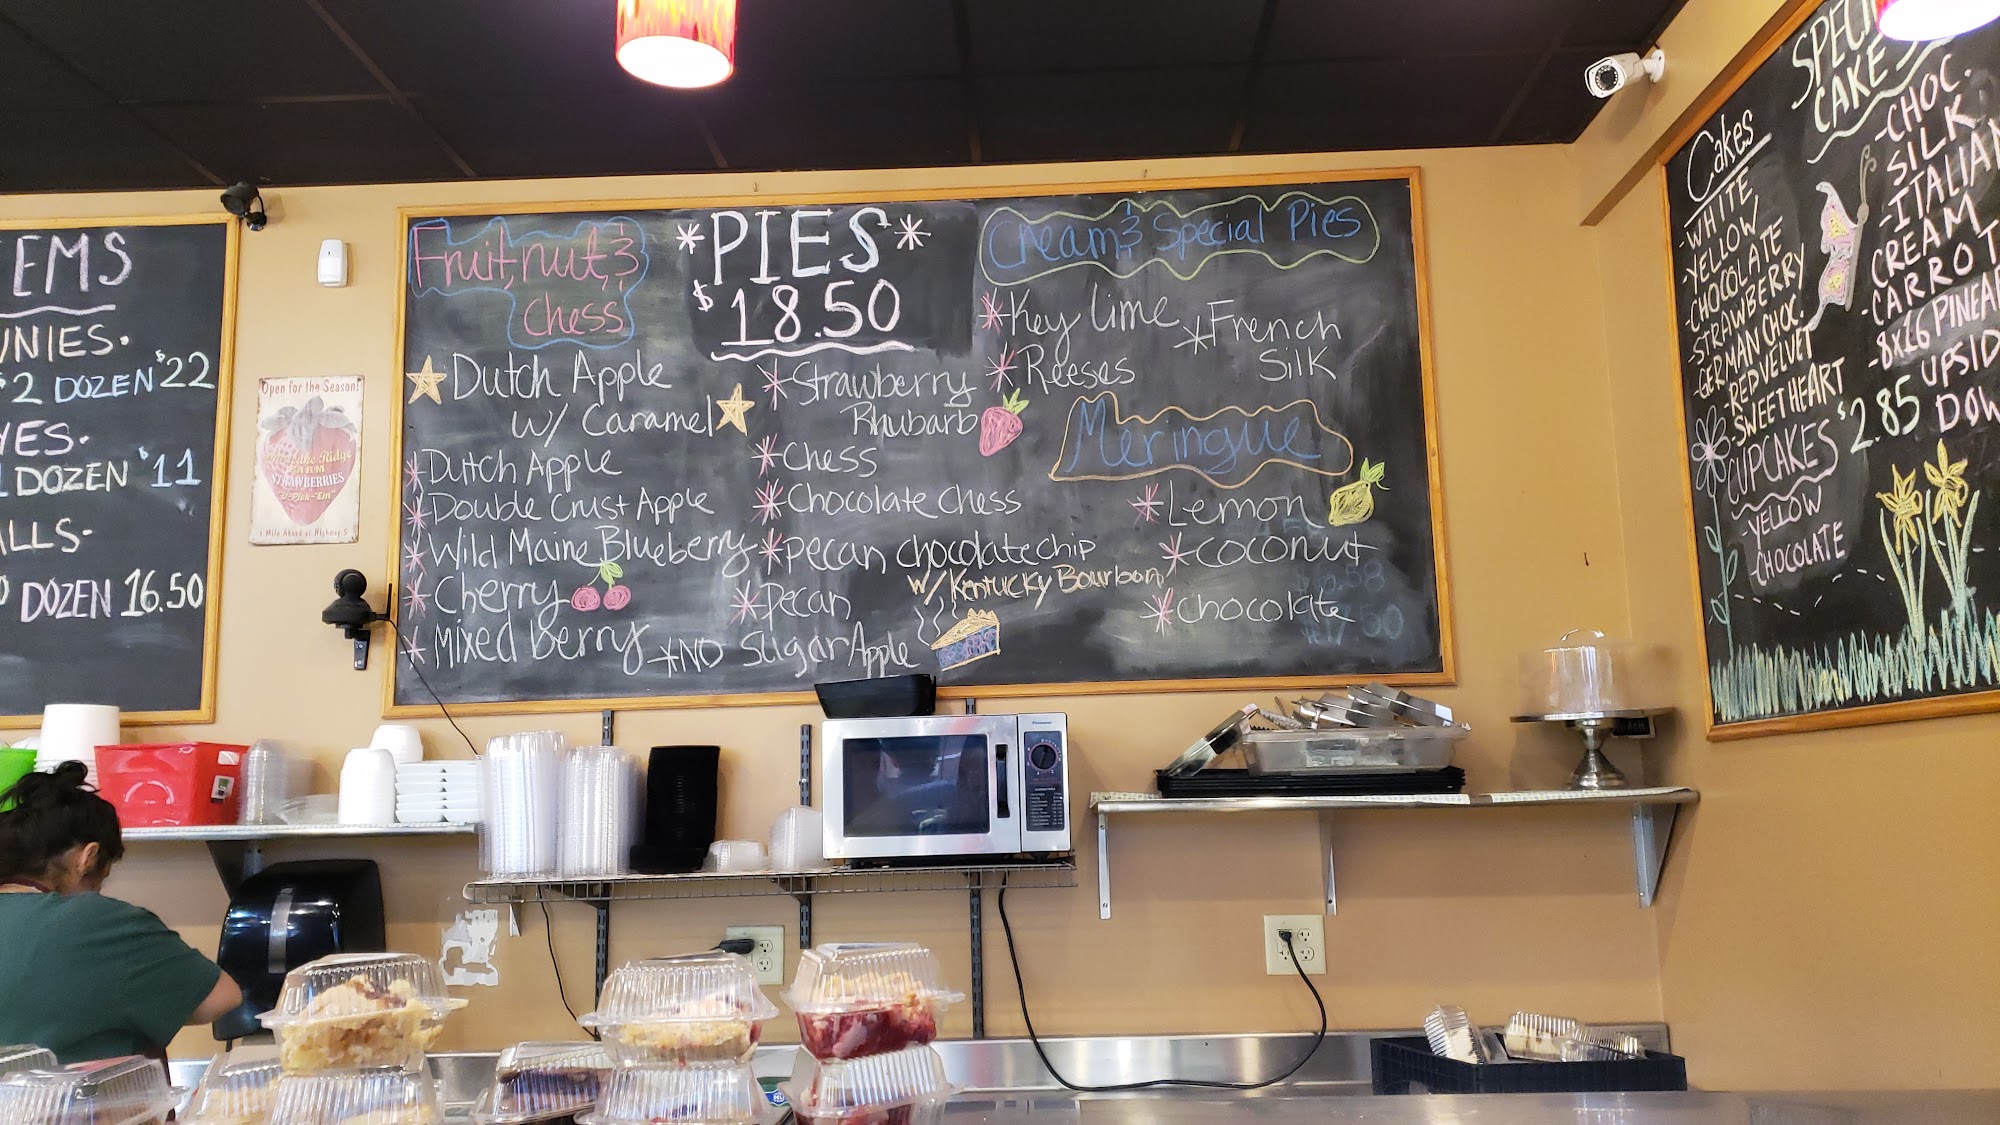 EMS
$2 DOZEN $22
DOZEN $11
DOZEN 16.50
Open for the Season!
FARM
STRAWBERRIES
"U-Pick-Em"
1 Mile Ahead at Highway 5
Fruit, nut, &
Chess
*PIES*
$18.50
Cream & Special Pies
Dutch Apple
w/ Caramel
*Dutch Apple
*Double Crust Apple
*Wild Maine Blueberry
*Cherry
*Mixed berry
*Strawberry
Rhubarb
*Chess
*Chocolate Chess
*pecan chocolate chip
w/ Kentucky Bourbon
*pecan
*NO Sugar Apple
*Key lime
*Reeses
*French
Silk
Meringue
*Lemon
*coconut
*chocolate
Cakes
-WHITE
-YELLOW
-CHOCOLATE
-STRAWBERRY
-GERMAN CHOC.
-RED VELVET
-SWEETHEART
CUPCAKES $2.85
-YELLOW
CHOCOLATE
CAKES
-CHOC.
SILK
-ITALIAN
CREAM
-CARROT
-8x16 PINEAP
UPSID
DOW
Panasonic